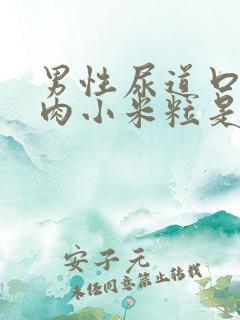 男性尿道口
肉小米粒是
安子元
未经同意禁止转载